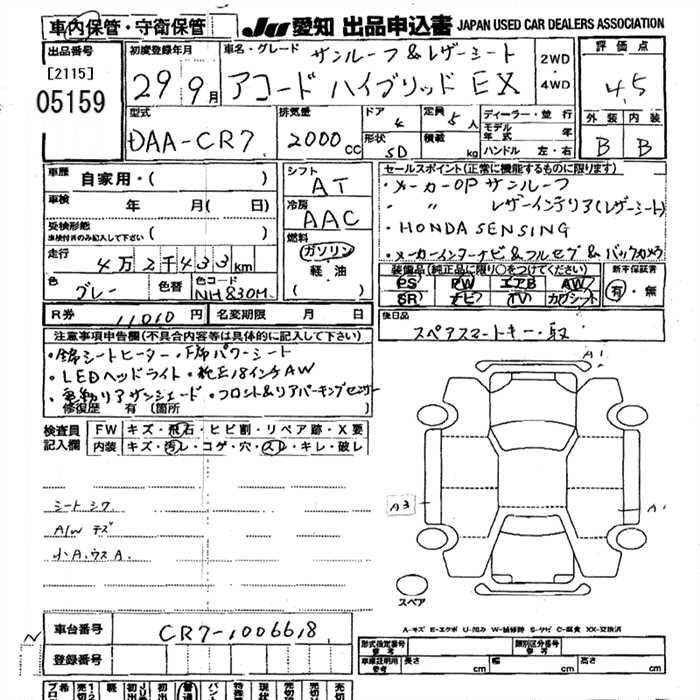 車内保管・守衛保管
JU 愛知 出品申込書 JAPAN USED CAR DEALERS ASSOCIATION
出品番号 [2115] 05159
初度登録年月 29 9月
車名・グレード サンルーフ&レザーシート
アコード ハイブリッド EX
2WD・4WD
評価点 4.5
外装 内装
B B
型式 DAA-CR7
排気量 2000cc
ドア 4
定員 5人
形状 SD
積載 kg
ディーラー・並行
モデル年式 年
ハンドル 左・右
車歴 自家用・( )
車検 年 月( 日)
受検形態
走行 4万2千433km
色 グレー
色替
色コード NH830M
シフト AT
冷房 AAC
燃料 ガソリン
軽油
( )
セールスポイント(正常に機能するものに限ります)
・メーカーOP サンルーフ
・ 〃 レザーインテリア(レザーシート)
・HONDA SENSING
・メーカーインターナビ&フルセグ&バックカメラ
装備品(純正品に限り○をつけてください)
PS PW エアB AW
SR ナビ TV カワシート
新車保証書
有・無
R券 11010円
名変期限 月 日
後日品
スペアスマートキー・取
注意事項申告欄(不具合内容等は具体的に記入して下さい)
・全席シートヒーター・F席パワーシート
・LEDヘッドライト・純正18インチAW
・電動リアサンシェード・フロント&リアパーキングセンサー
修復歴 有 〔箇所 〕
検査員記入欄
FW キズ・飛石・ヒビ割・リペア跡・X要
内装 キズ・汚レ・コゲ・穴・スレ・キレ・破レ
シートシワ
A/W キズ
小A.ウスA.
A1
A3
A
スペア
A-キズ E-エクボ U-凹み W-補修跡 S-サビ C-腐食 XX-交換済
車台番号 CR7-1006618
登録番号
型式指定番号
類別区分番号
車庫証明用参考 長さ cm 幅 cm 高さ cm